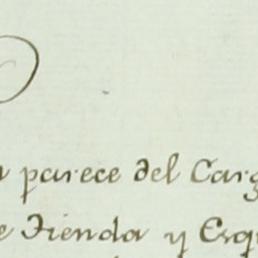 parece del Carg
e Tienda y Esqu